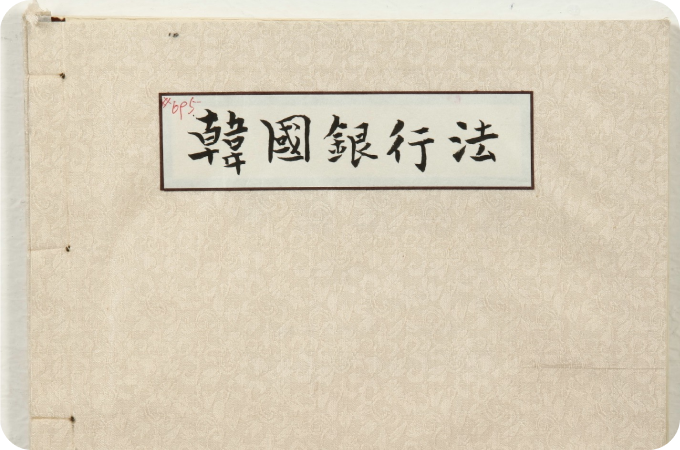 #695
韓國銀行法